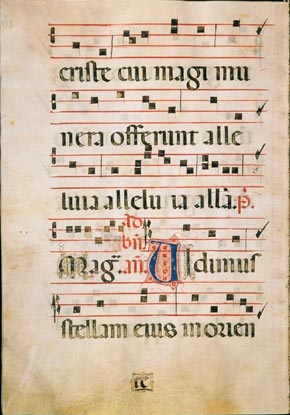 criste cui magi mu
nera offerunt alle
luia allelu ia all'a. p̄.
ad
bn̄
Mag̅. an̄. Vidimus
stellam eius in orien